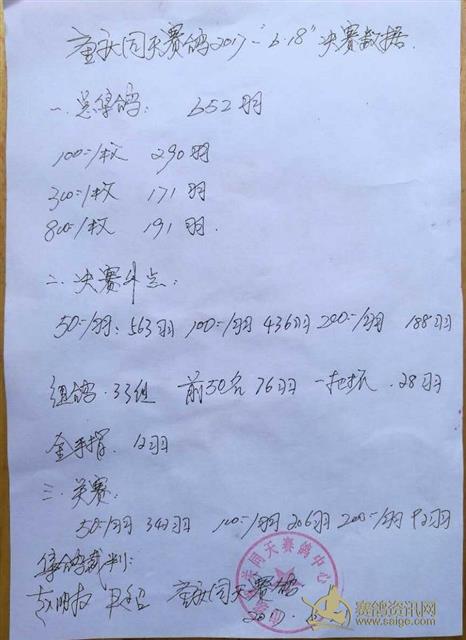 重庆同天赛鸽2017"6.18"决赛数据.
一.总集鸽: 652羽
100元/枚 290羽
300元/枚 171羽
800元/枚 191羽.
二.决赛外点:
50元/羽: 563羽 100元/羽 436羽 200元/羽 188羽
组鸽.33组 前50名 76羽 一把抓.28羽
金手指. 12羽
三.关赛:
50元/羽 342羽 100元/羽 206羽 200元/羽 92羽
集鸽裁判:
重庆同天赛鸽
2017.
同天赛鸽中心
赛鸽资讯网
www.saige.com